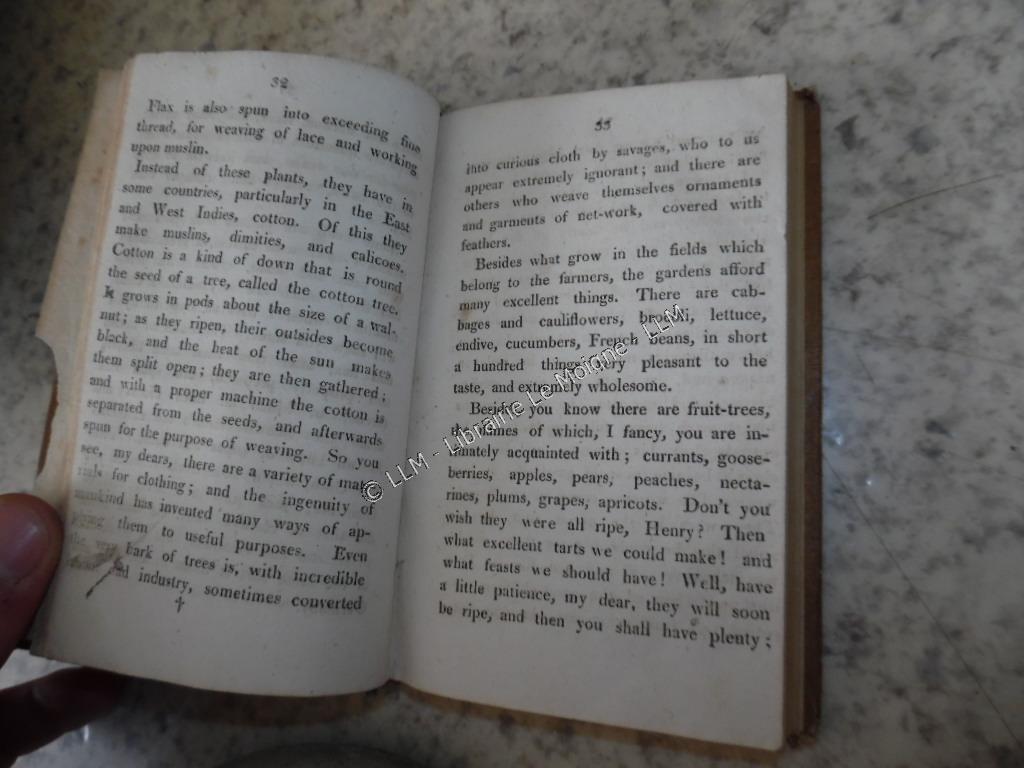 32
Flax is also spun into exceeding fine
thread, for weaving of lace and working
upon muslin.
Instead of these plants, they have in
some countries, particularly in the East
and West Indies, cotton. Of this they
make muslins, dimities, and calicoes.
Cotton is a kind of down that is round
the seed of a tree, called the cotton tree.
It grows in pods about the size of a wal-
nut; as they ripen, their outsides become
black, and the heat of the sun makes
them split open; they are then gathered;
and with a proper machine the cotton is
separated from the seeds, and afterwards
spun for the purpose of weaving. So you
see, my dears, there are a variety of mate-
rials for clothing; and the ingenuity of
mankind has invented many ways of ap-
plying them to useful purposes. Even
the very bark of trees is, with incredible
industry, sometimes converted
†
33
into curious cloth by savages, who to us
appear extremely ignorant; and there are
others who weave themselves ornaments
and garments of net-work, covered with
feathers.
Besides what grow in the fields which
belong to the farmers, the gardens afford
many excellent things. There are cab-
bages and cauliflowers, brocoli, lettuce,
endive, cucumbers, French beans, in short
a hundred things very pleasant to the
taste, and extremely wholesome.
Besides you know there are fruit-trees,
the names of which, I fancy, you are in-
timately acquainted with; currants, goose-
berries, apples, pears, peaches, necta-
rines, plums, grapes, apricots. Don't you
wish they were all ripe, Henry? Then
what excellent tarts we could make! and
what feasts we should have! Well, have
a little patience, my dear, they will soon
be ripe, and then you shall have plenty;
© LLM - Librairie Le Moigne - LLM